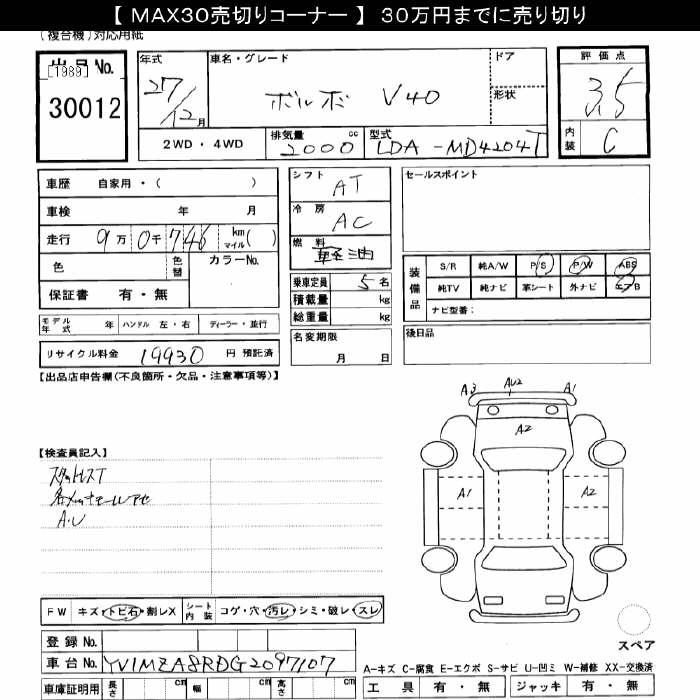 【 MAX30売切りコーナー 】 30万円までに売り切り
(複合機)対応用紙
出品No.
[1989]
30012
年式
27/12月
車名・グレード
ボルボ V40
ドア
形状
評価点
3.5
内装
C
2WD・4WD
排気量 cc
2000
型式
LDA-MD4204T
車歴 自家用・( )
車検 年 月
走行 9万0千746 km マイル( )
色 色替 カラーNo.
保証書 有・無
シフト AT
冷房 AC
燃料 軽油
乗車定員 5名
積載量 kg
総重量 kg
セールスポイント
装備品
S/R 純A/W P/S P/W ABS
純TV 純ナビ 革シート 外ナビ エアB
ナビ型番：
モデル年式 年 ハンドル 左・右 ディーラー・並行
名変期限 月 日
後日品
リサイクル料金 19930 円 預託済
【出品店申告欄(不良箇所・欠品・注意事項等)】
A3 AU2 A1
A2
A1 A2
【検査員記入】
A.U
FW キズ・トビ石・割レX シート内装 コゲ・穴・汚レ・シミ・破レ・スレ
スペア
登録No.
車台No. YV1MZA8RDG2097107
A-キズ C-腐食 E-エクボ S-サビ U-凹ミ W-補修 XX-交換済
車庫証明用 長さ cm 幅 cm 高さ cm
工具 有・無 ジャッキ 有・無